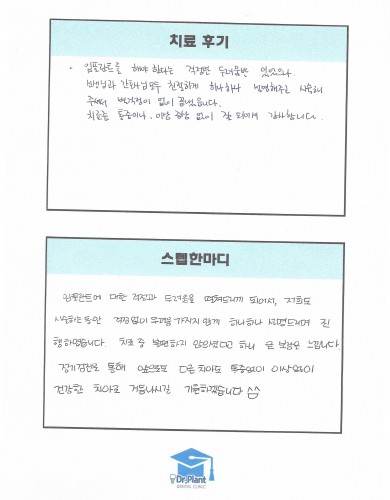 치료 후기
임플란트를 해야 한다는 걱정만 두려움만 있었으나
선생님과 간호사님 모두 친절하게 하나하나 설명해주고 시술해
주셔서 별걱정이 없이 끝났습니다.
치료중 통증이나, 이상 증상 없이 잘 되어서 감사합니다.
스텝한마디
임플란트에 대한 걱정과 두려움을 떨쳐드리게 되어서, 저희도
시술하는동안 걱정없이 무서움 가지지 않게 하나하나 설명드리며 진
행하였습니다. 치료 중 불편하지 않으셨다고 하니 큰 보람을 느낍니다.
정기검진을 통해 앞으로도 다른 치아도 통증없이 이상없이
건강한 치아로 거듭나시길 기원하겠습니다 ^^
Dr.Plant
DENTAL CLINIC